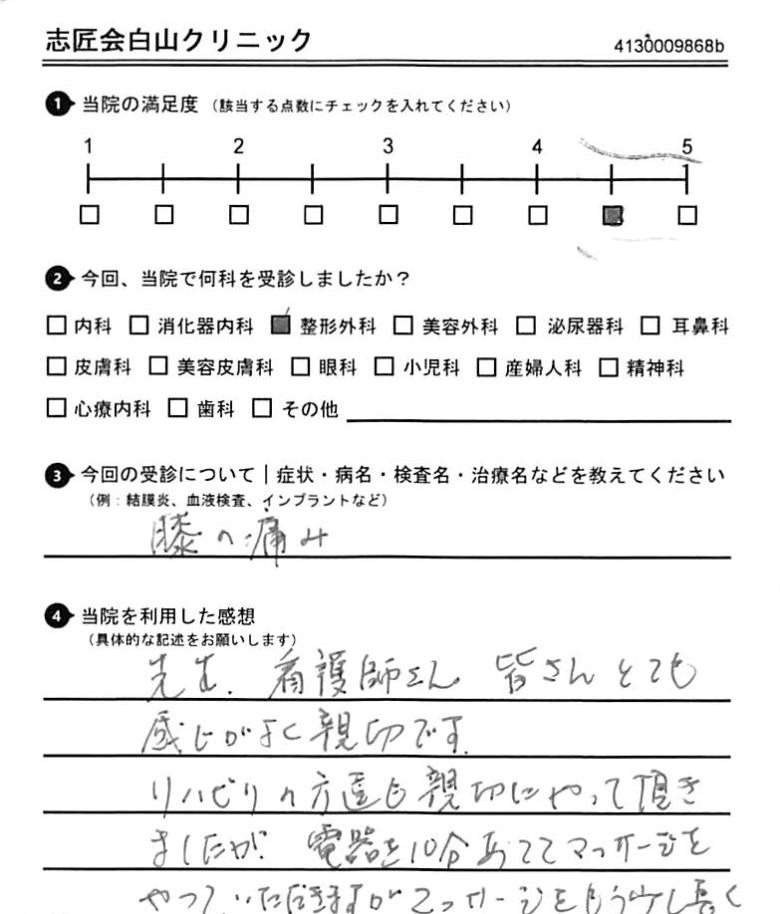 志匠会白山クリニック
4130009868b
1 当院の満足度 (該当する点数にチェックを入れてください)
1 2 3 4 5
2 今回、当院で何科を受診しましたか?
内科 消化器内科 整形外科 美容外科 泌尿器科 耳鼻科
皮膚科 美容皮膚科 眼科 小児科 産婦人科 精神科
心療内科 歯科 その他
3 今回の受診について|症状・病名・検査名・治療名などを教えてください
(例:結膜炎、血液検査、インプラントなど)
膝の痛み
4 当院を利用した感想
(具体的な記述をお願いします)
先生、看護師さん 皆さんとても
感じがよく親切です。
リハビリの方達も親切にやって頂き
ましたが、電器を10分あててマッサージを
やっていただきますがマッサージをもう少し長く